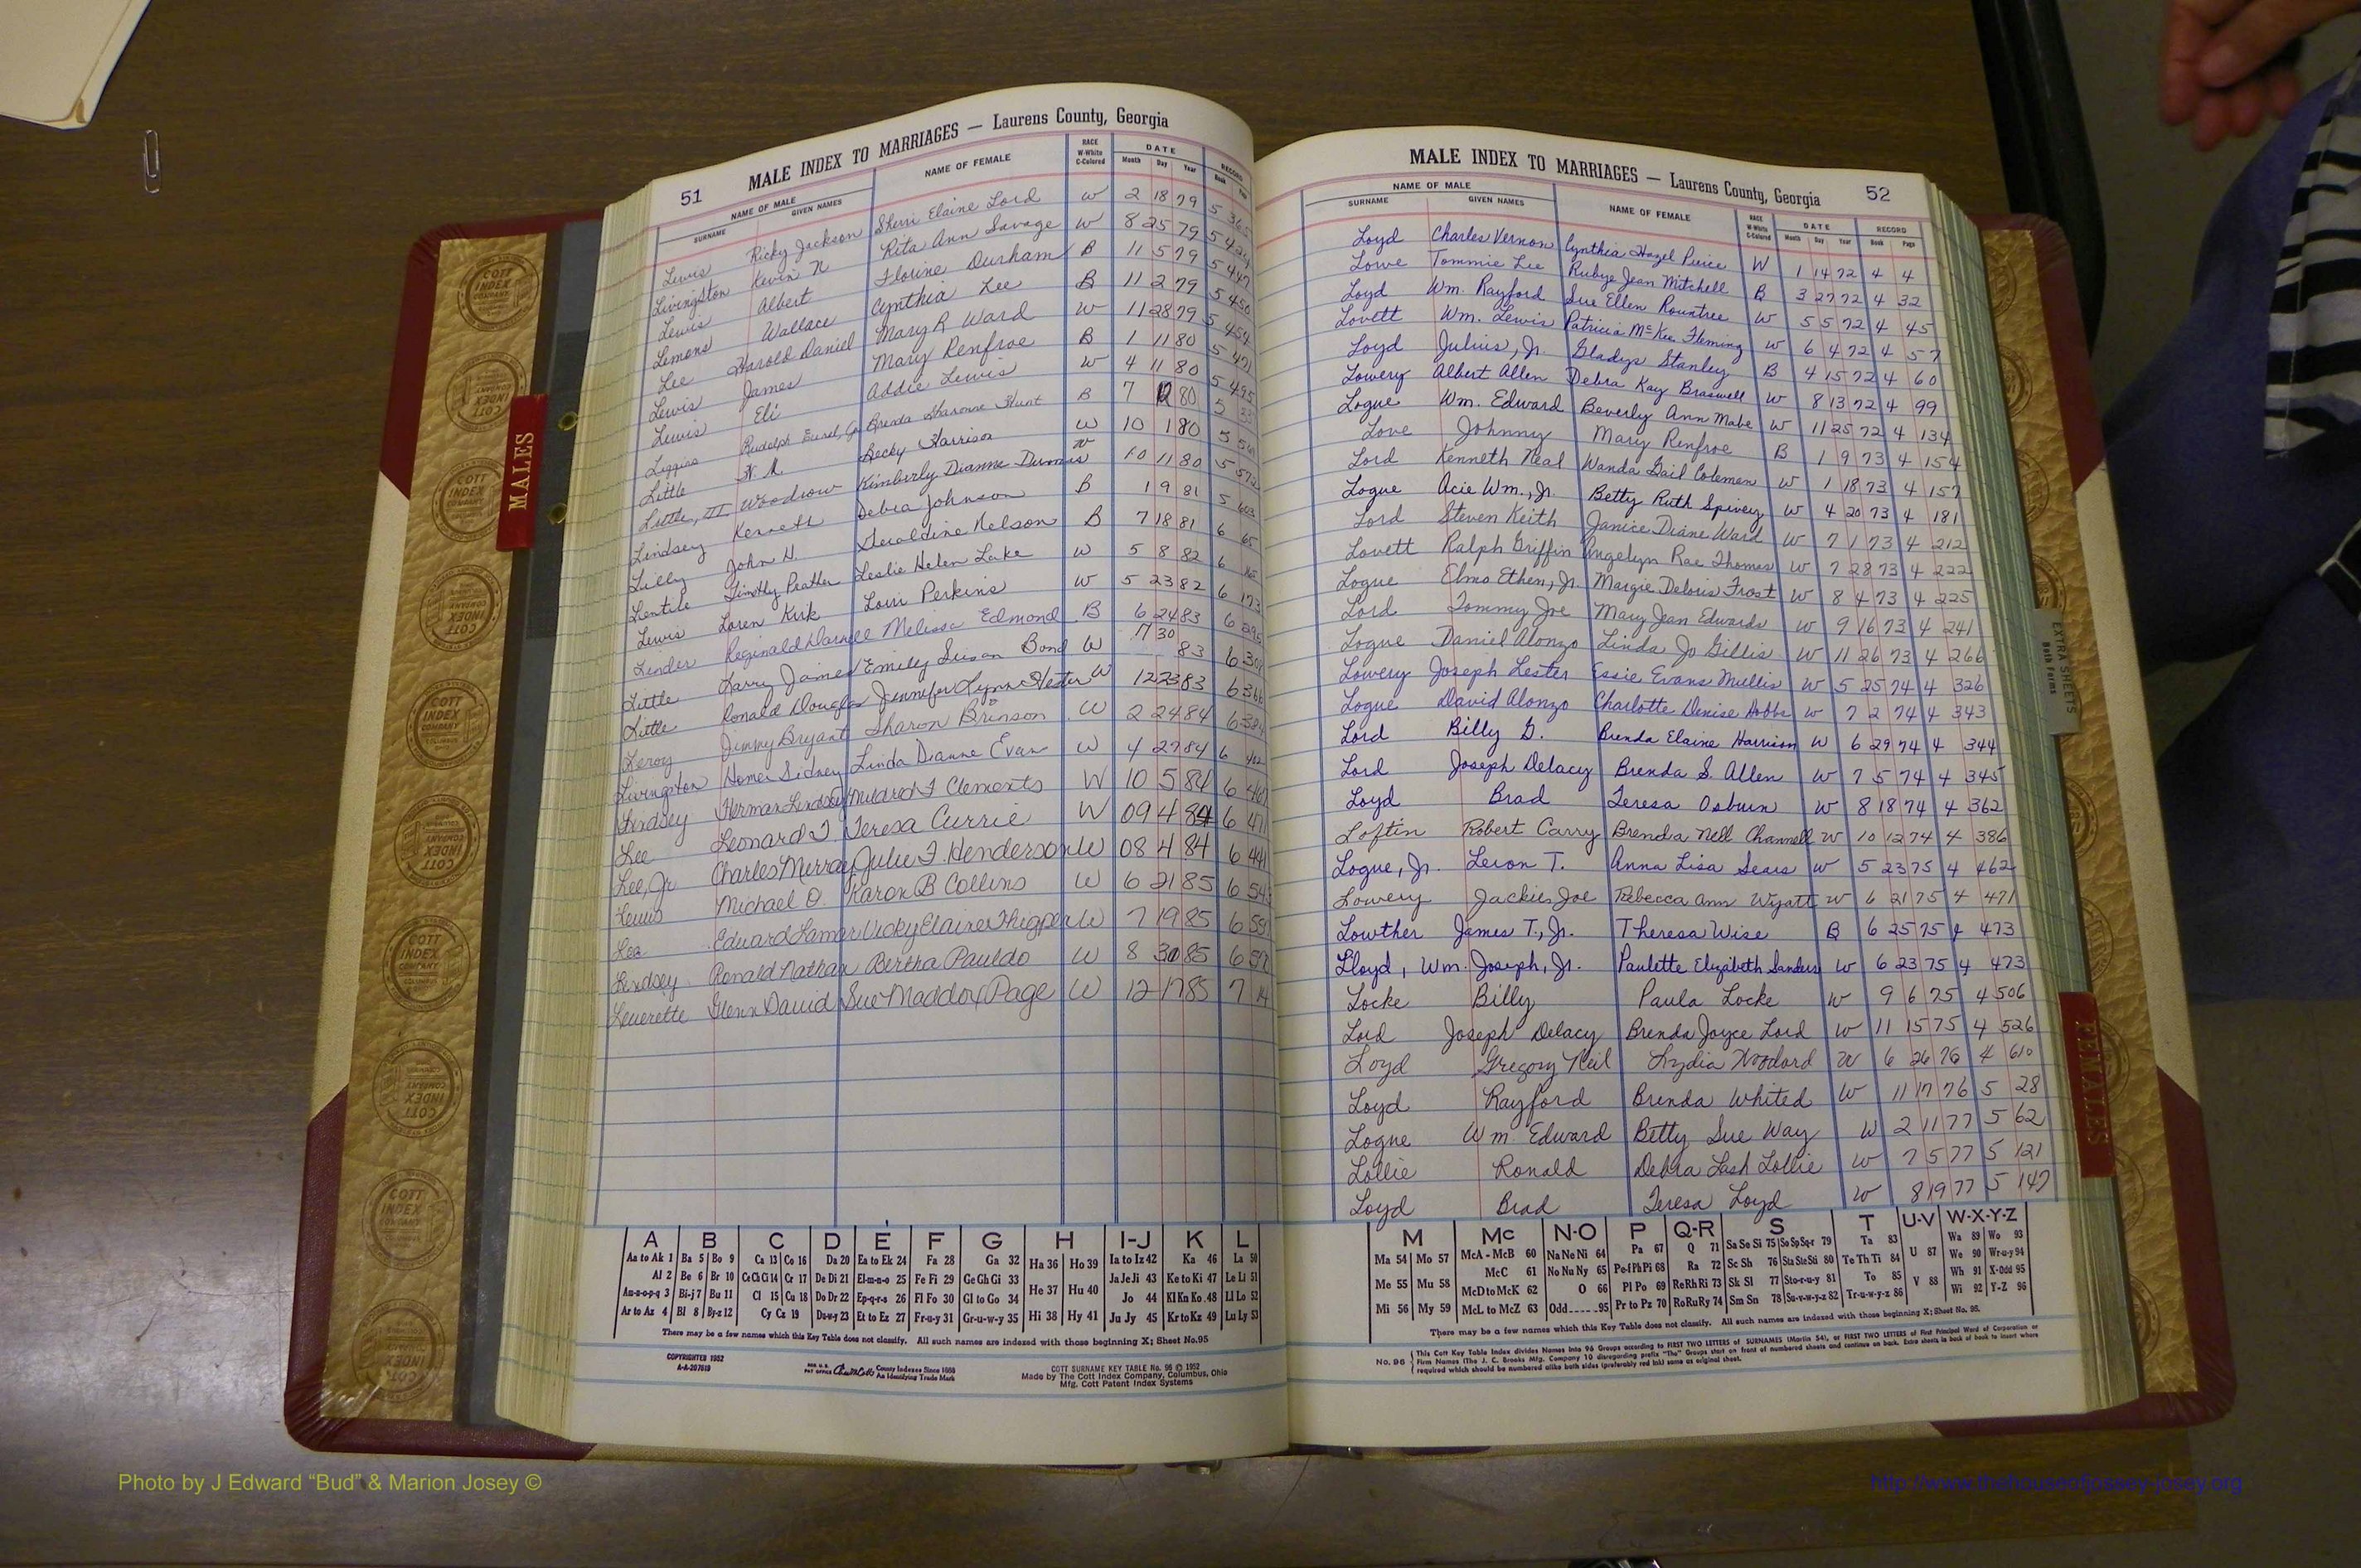 51 MALE INDEX TO MARRIAGES — Laurens County, Georgia
NAME OF MALE NAME OF FEMALE RACE W-White C-Colored DATE RECORD
SURNAME GIVEN NAMES Month Day Year Book Page
Lewis Ricky Jackson Sherri Elaine Lord W 2 18 79 5 365
Livingston Kevin N Rita Ann Savage W 8 25 79 5
Lewis Albert Florine Durham B 11 5 79 5 447
Lemons Wallace Cynthia Lee B 11 2 79 5 450
Lee Harold Daniel Mary R Ward W 11 28 79 5 454
Lewis James Mary Renfroe B 1 11 80 5 471
Lewis Eli Addie Lewis W 4 11 80 5 495
Liggins Rudolph Brenda Sharonne Hunt B 7 80 5
Little Becky Harrison W 10 1 80 5
Little, III Woodrow Kimberly Dianne W 10 11 80 5 572
Lindsey Kenneth Debra Johnson B 1 9 81 5 603
Lilly John H. Geraldine Nelson B 7 18 81 6 65
Lentile Timothy Leslie Helen Lake W 5 8 82 6
Lewis Loren Kirk Lorri Perkins W 5 23 82 6 173
Linder Reginald Darnell Melissa Edmond B 6 24 83 6
Little Larry James Emily Susan Bond W 11 30 83 6
Little Ronald Douglas Jennifer Lynn Hester W 12 23 83 6 366
Leroy Jimmy Bryant Sharon Brinson W 2 24 84 6
Livingston Homer Sidney Linda Dianne Evan W 4 27 84 6
Lindsey Herman Lindsey Mildred F Clements W 10 5 84 6
Lee Leonard T. Teresa Currie W 09 4 84 6
Lee, Jr Charles Murray Julie F. Henderson W 08 4 84 6 441
Lewis Michael O. Karon B Collins W 6 21 85 6
Lee Edward Lamar Vicky Elaine Thigpen W 7 19 85 6
Lindsey Ronald Nathan Bertha Pauldo W 8 30 85 6
Leverette Glenn David Sue Maddox Page W 12 17 85 7 14
A B C D E F G H I-J K L
Aa to Ak 1 Ba 5 Bo 9 Ca 13 Co 16 Da 20 Ea to Ek 24 Fa 28 Ga 32 Ha 36 Ho 39 Ia to Iz 42 Ka 46 La 50
Al 2 Be 6 Br 10 Ce Ch Ci 14 Cr 17 De Di 21 El-m-n-o 25 Fe Fi 29 Ge Gh Gi 33 He 37 Hu 40 Ja Je Ji 43 Ke to Ki 47 Le Li 51
An-o-p-q 3 Bi-j 7 Bu 11 Cl 15 Cu 18 Do Dr 22 Ep-q-r-s 26 Fl Fo 30 Gl to Go 34 Jo 44 Kl Kn Ko 48 Ll Lo 52
Ar to Az 4 Bl 8 By-z 12 Cy Cz 19 Du-w-y 23 Et to Ez 27 Fr-u-y 31 Gr-u-w-y 35 Hi 38 Hy 41 Ju Jy 45 Kr to Kz 49 Lu Ly 53
There may be a few names which this Key Table does not classify. All such names are indexed with those beginning X; Sheet No.95
COPYRIGHTED 1952
A-A-207619
REG. U.S. PAT OFFICE County Indexes Since 1888 An Identifying Trade Mark
COTT SURNAME KEY TABLE No. 96 © 1952
Made by The Cott Index Company, Columbus, Ohio
Mfg. Cott Patent Index Systems
MALE INDEX TO MARRIAGES — Laurens County, Georgia 52
NAME OF MALE NAME OF FEMALE RACE W-White C-Colored DATE RECORD
SURNAME GIVEN NAMES Month Day Year Book Page
Loyd Charles Vernon Cynthia Hazel Peirce W 1 14 72 4 4
Lowe Tommie Lee Rubye Jean Mitchell B 3 27 72 4 32
Loyd Wm. Rayford Sue Ellen Rountree W 5 5 72 4 45
Lovett Wm. Lewis Patricia McKee Fleming W 6 4 72 4 57
Loyd Julius, Jr. Gladys Stanley B 4 15 72 4 60
Lowery Albert Allen Debra Kay Braswell W 8 13 72 4 99
Logue Wm. Edward Beverly Ann Mabe W 11 25 72 4 134
Love Johnny Mary Renfroe B 1 9 73 4 154
Lord Kenneth Neal Wanda Gail Coleman W 1 18 73 4 157
Logue Acie Wm., Jr. Betty Ruth Spivey W 4 20 73 4 181
Lord Steven Keith Janice Diane Ward W 7 1 73 4 212
Lovett Ralph Griffin Angelyn Rae Thomas W 7 28 73 4 222
Logue Elmo Ethen, Jr. Margie Deloris Frost W 8 4 73 4 225
Lord Tommy Joe Mary Jean Edwards W 9 16 73 4 241
Logue Daniel Alonzo Linda Jo Gillis W 11 26 73 4 266
Lowery Joseph Lester Essie Evans Mullis W 5 25 74 4 326
Logue David Alonzo Charlotte Denise Hobbs W 7 2 74 4 343
Lord Billy G. Brenda Elaine Harrison W 6 29 74 4 344
Lord Joseph Delacy Brenda S. Allen W 7 5 74 4 345
Loyd Brad Teresa Osburn W 8 18 74 4 362
Loftin Robert Carry Brenda Nell Channell W 10 12 74 4 386
Logue, Jr. Leron T. Anna Lisa Sears W 5 23 75 4 462
Lowery Jackie Joe Rebecca Ann Wyatt W 6 21 75 4 471
Lowther James T., Jr. Theresa Wise B 6 25 75 4 473
Lloyd, Wm. Joseph, Jr. Paulette Elizabeth Sanders W 6 23 75 4 473
Locke Billy Paula Locke W 9 6 75 4 506
Lord Joseph Delacy Brenda Joyce Lord W 11 15 75 4 526
Loyd Gregory Neil Lydia Woodard W 6 26 76 4 610
Loyd Rayford Brenda Whited W 11 17 76 5 28
Logue Wm. Edward Betty Sue Way W 2 11 77 5 62
Lollie Ronald Debra Lash Lollie W 7 5 77 5 121
Loyd Brad Teresa Loyd W 8 19 77 5 147
M Mc N-O P Q-R S T U-V W-X-Y-Z
Ma 54 Mo 57 McA - McB 60 Na Ne Ni 64 Pa 67 Q 71 Sa Se Si 75 So Sp Sq-r 79 Ta 83 U 87 Wa 89 Wo 93
McC 61 No Nu Ny 65 Pe-f Ph Pi 68 Ra 72 Sc Sh 76 Sta Ste Sti 80 Te Th Ti 84 We 90 Wr-u-y 94
Me 55 Mu 58 McD to McK 62 O 66 Pl Po 69 Re Rh Ri 73 Sk Sl 77 Sto-r-u-y 81 To 85 V 88 Wh 91 X-Odd 95
Mi 56 My 59 McL to McZ 63 Odd.....95 Pr to Pz 70 Ro Ru Ry 74 Sm Sn 78 Su-v-w-y-z 82 Tr-u-w-y-z 86 Wi 92 Y-Z 96
There may be a few names which this Key Table does not classify. All such names are indexed with those beginning X; Sheet No. 95.
No. 96 This Cott Key Table Index divides Names into 96 Groups according to FIRST TWO LETTERS of SURNAMES (Martin 54), or FIRST TWO LETTERS of First Principal Word of Corporation or
Firm Names (The J. C. Brooks Mfg. Company 10 disregarding prefix "The" Groups start on front of numbered sheets and continue on back. Extra sheets in back of book to insert where
required which should be numbered alike both sides (preferably red ink) same as original sheet.
MALES
FEMALES
EXTRA SHEETS
Both Forms
COTT INDEX COMPANY
Photo by J Edward “Bud” & Marion Josey ©
http://www.thehouseofjossey-josey.org